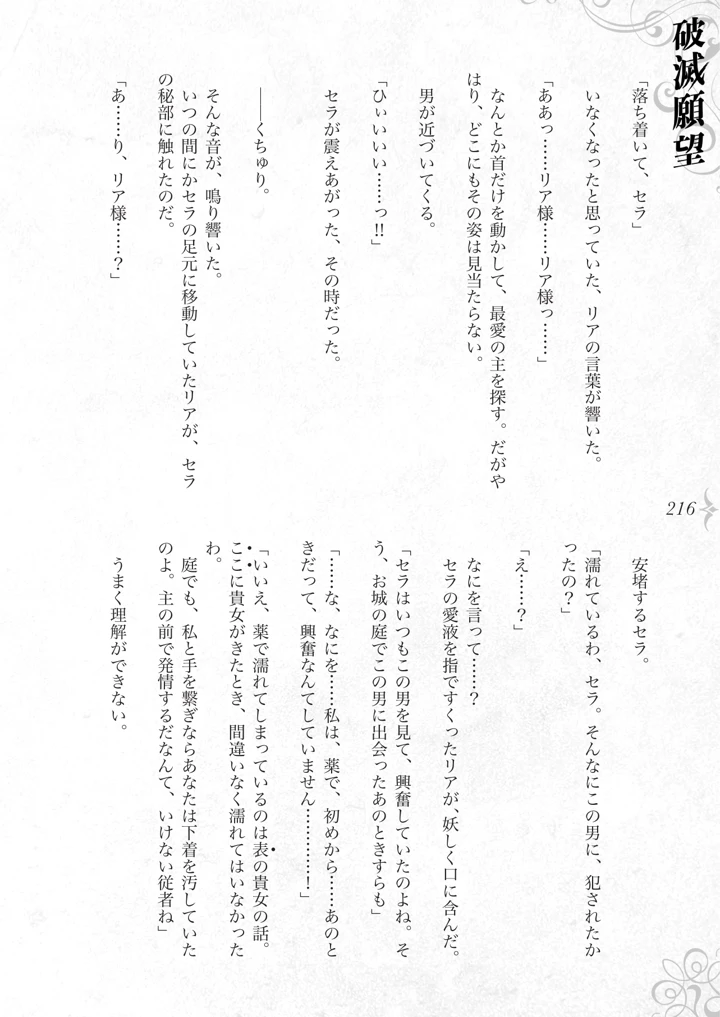 破滅願望
「落ち着いて、セラ」
いなくなったと思っていた、リアの言葉が響いた。
「ああっ……リア様……リア様っ……」
なんとか首だけを動かして、最愛の主を探す。だがや
はり、どこにもその姿は見当たらない。
男が近づいてくる。
「ひぃいいい……っ!!」
セラが震えあがった、その時だった。
――くちゅり。
そんな音が、鳴り響いた。
いつの間にかセラの足元に移動していたリアが、セラ
の秘部に触れたのだ。
「あ……り、リア様……？」
216
安堵するセラ。
「濡れているわ、セラ。そんなにこの男に、犯されたか
ったの？」
「え……？」
なにを言って……？
セラの愛液を指ですくったリアが、妖しく口に含んだ。
「セラはいつもこの男を見て、興奮していたのよね。そ
う、お城の庭でこの男に出会ったあのときすらも」
「……な、なにを……私は、薬で、初めから……あのと
きだって、興奮なんてしていません…………！」
「いいえ、薬で濡れてしまっているのは表の貴女の話。
ここに貴女がきたとき、間違いなく濡れてはいなかった
わ。
庭でも、私と手を繋ぎならあなたは下着を汚していた
のよ。主の前で発情するだなんて、いけない従者ね」
うまく理解ができない。